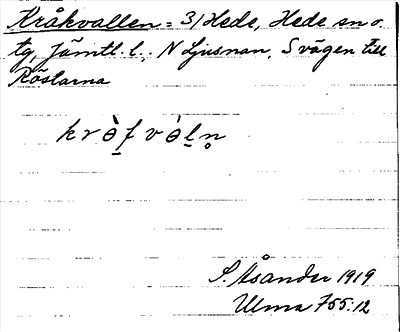 Kråkvallen = 3/ Hede, Hede sn o.
tg, Jämtl. l., N Ljusnan, S vägen till
Röstarna
krɵ̠̀fvɵ̀l̠n̥
S. Åsander 1919
Ulma 755:12